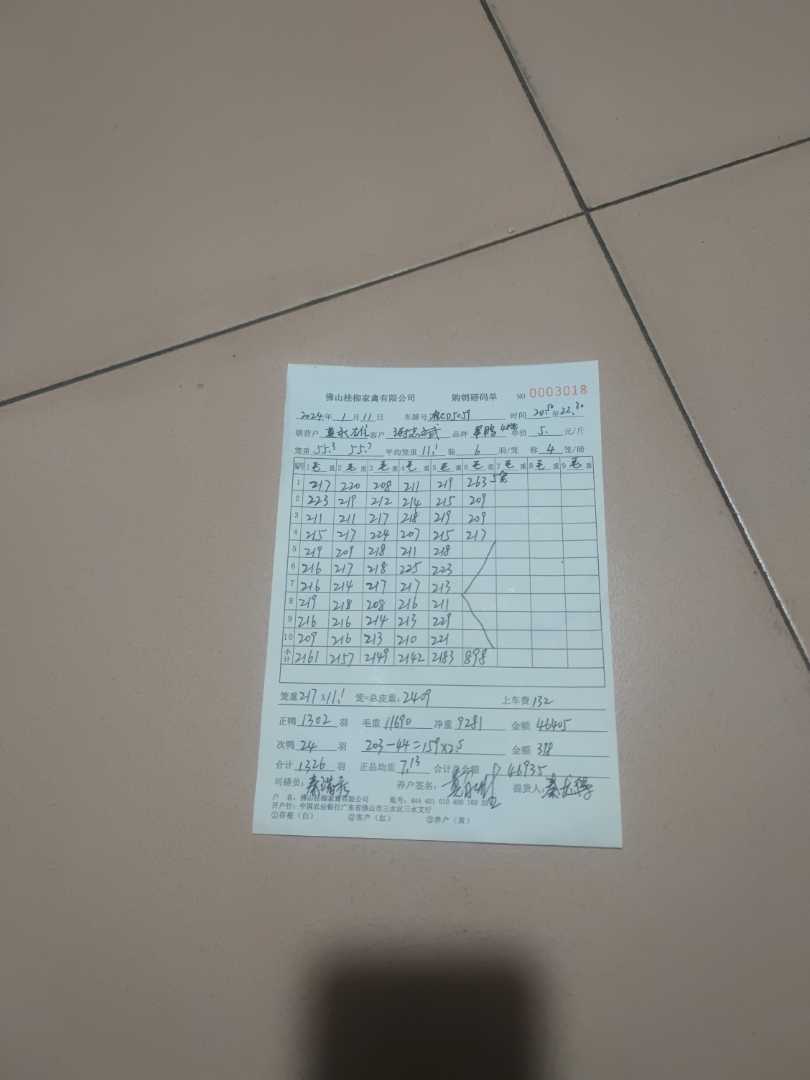 佛山桂柳家禽有限公司 购销磅码单 NO 0003018
2024年 1月 11日 车牌号 时间 20:50 22:30
联营户 客户 品种 单价 5. 元/斤
笼重 55.3 55.7 平均笼重 11.1 装 6 羽/笼 称 4 笼/磅
1毛重 2毛重 3毛重 4毛重 5毛重 6毛重 7毛重 8毛重 9毛重
1 217 220 208 211 219 263 5笼
2 223 219 212 214 215 209
3 211 211 217 218 219 209
4 215 217 224 207 215 217
5 219 209 218 211 218
6 216 217 218 225 223
7 216 214 217 217 213
8 219 218 208 216 211
9 216 216 214 213 229
10 209 216 213 210 221
小计 2161 2157 2149 2142 2183 898
笼重 217×11.1 笼=总皮重: 2409 上车费 132
正鸭 1302 羽 毛重 11690 净重 9281 金额 46405
次鸭 24 羽 203-44=159×2.5 金额 398
合计 1326 羽 正品均重 7.13 合计总金额 46935
司磅员: 养户签名: 提货人:
户 名: 佛山桂柳家禽有限公司 账号:
开户行: 中国农业银行广东省佛山市三水区三水支行
①存根(白) ②客户(红) ③养户(黄)